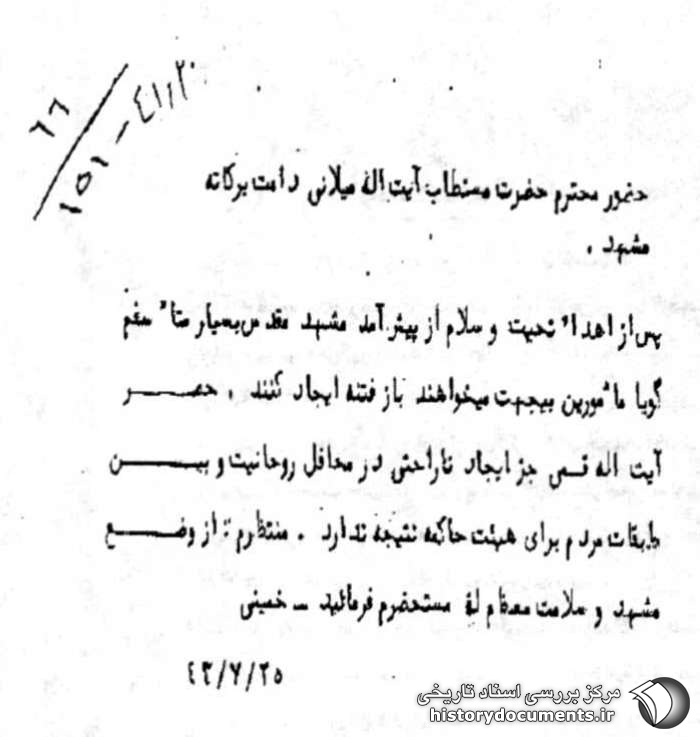 ۶۶
۱۵۱ - ۴۱٫۲۰
حضور محترم حضرت مستطاب آیت اله میلانی دامت برکاته
مشهد .
پس از اهداء تحیت و سلام از پیش‌آمد مشهد مقدس بسیار متاٴسفم
گویا ماٴمورین بیجهت میخواهند باز فتنه ایجاد کنند . حصر
آیت اله قمی جز ایجاد ناراحتی در محافل روحانیت و بین
طبقات مردم برای هیئت حاکمه نتیجه ندارد . منتظرم از وضع
مشهد و سلامت معظم له مستحضرم فرمائید ــ خمینی
۴۳/۷/۲۵
مرکز بررسی اسناد تاریخی
historydocuments.ir